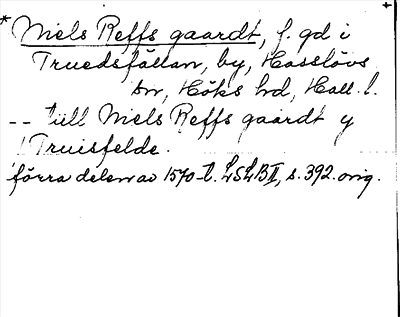 * Niels Reffs gaardt, f. gd i
Truedsfällan, by, Hasslövs
sn, Höks hd, Hall. l.
-- till Niels Reffs gaardt y
Truisfelde.
förra delen av 1570-t. LSLB II, s. 392. orig.